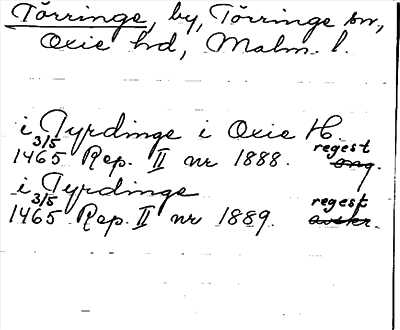 Törringe, by, Törringe sn,
Oxie hd, Malm. l.
i Tyrdinge i Oxie H.
3/5 1465 Rep. II nr 1888. regest orig.
i Tyrdinge
3/5 1465 Rep. II nr 1889. regest avskr.